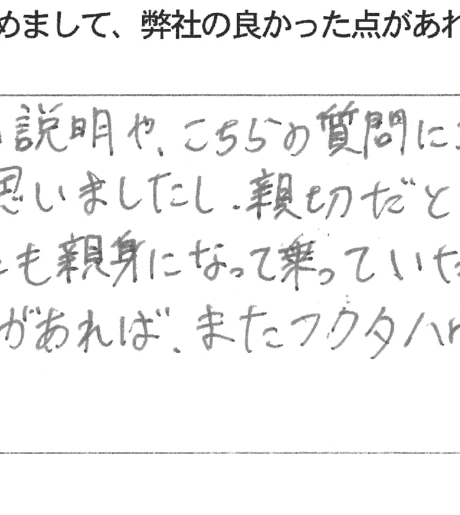 めまして、弊社の良かった点があれ
説明や、こちらの質問に
思いましたし、親切だと
も親身になって乗っていた
があれば、またフクタハウ